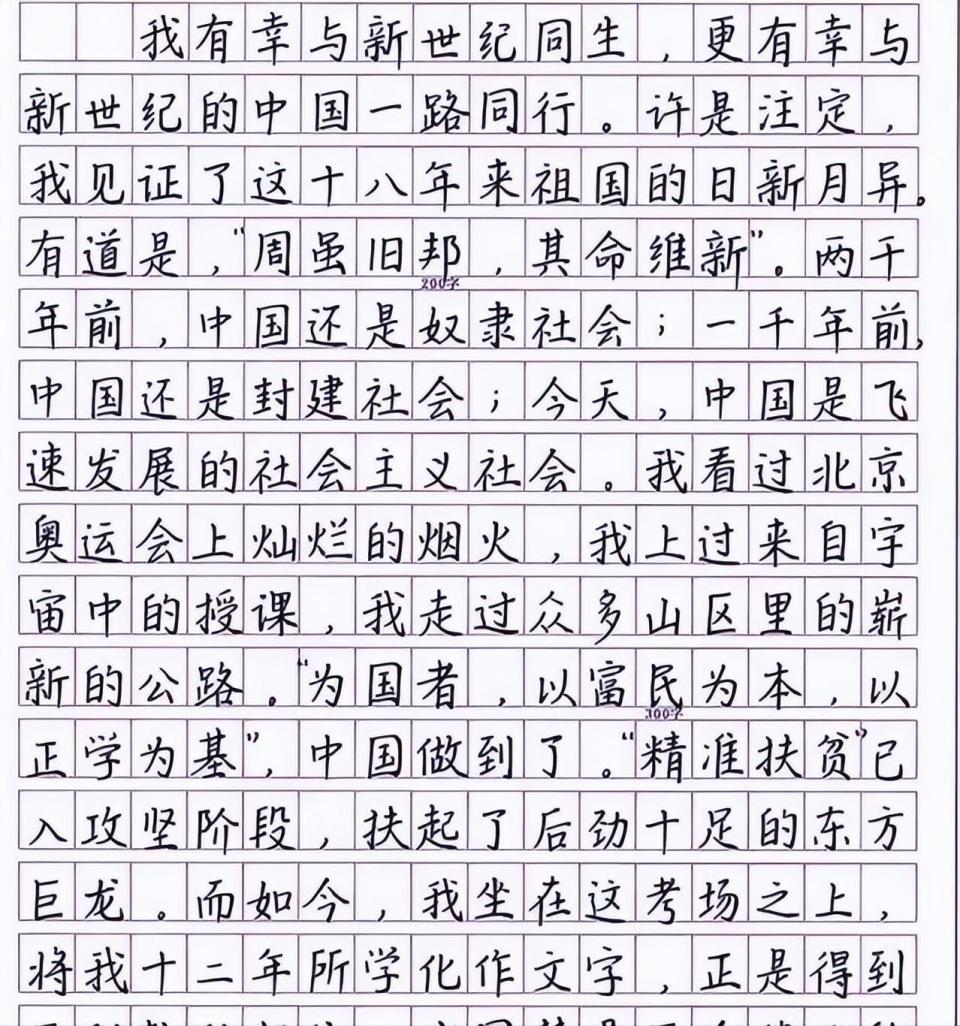 我有幸与新世纪同生，更有幸与
新世纪的中国一路同行。许是注定，
我见证了这十八年来祖国的日新月异。
有道是，“周虽旧邦，其命维新”。两千
200字
年前，中国还是奴隶社会；一千年前，
中国还是封建社会；今天，中国是飞
速发展的社会主义社会。我看过北京
奥运会上灿烂的烟火，我上过来自宇
宙中的授课，我走过众多山区里的崭
新的公路。“为国者，以富民为本，以
300字
正学为基”，中国做到了。“精准扶贫”已
入攻坚阶段，扶起了后劲十足的东方
巨龙。而如今，我坐在这考场之上，
将我十二年所学化作文字，正是得到